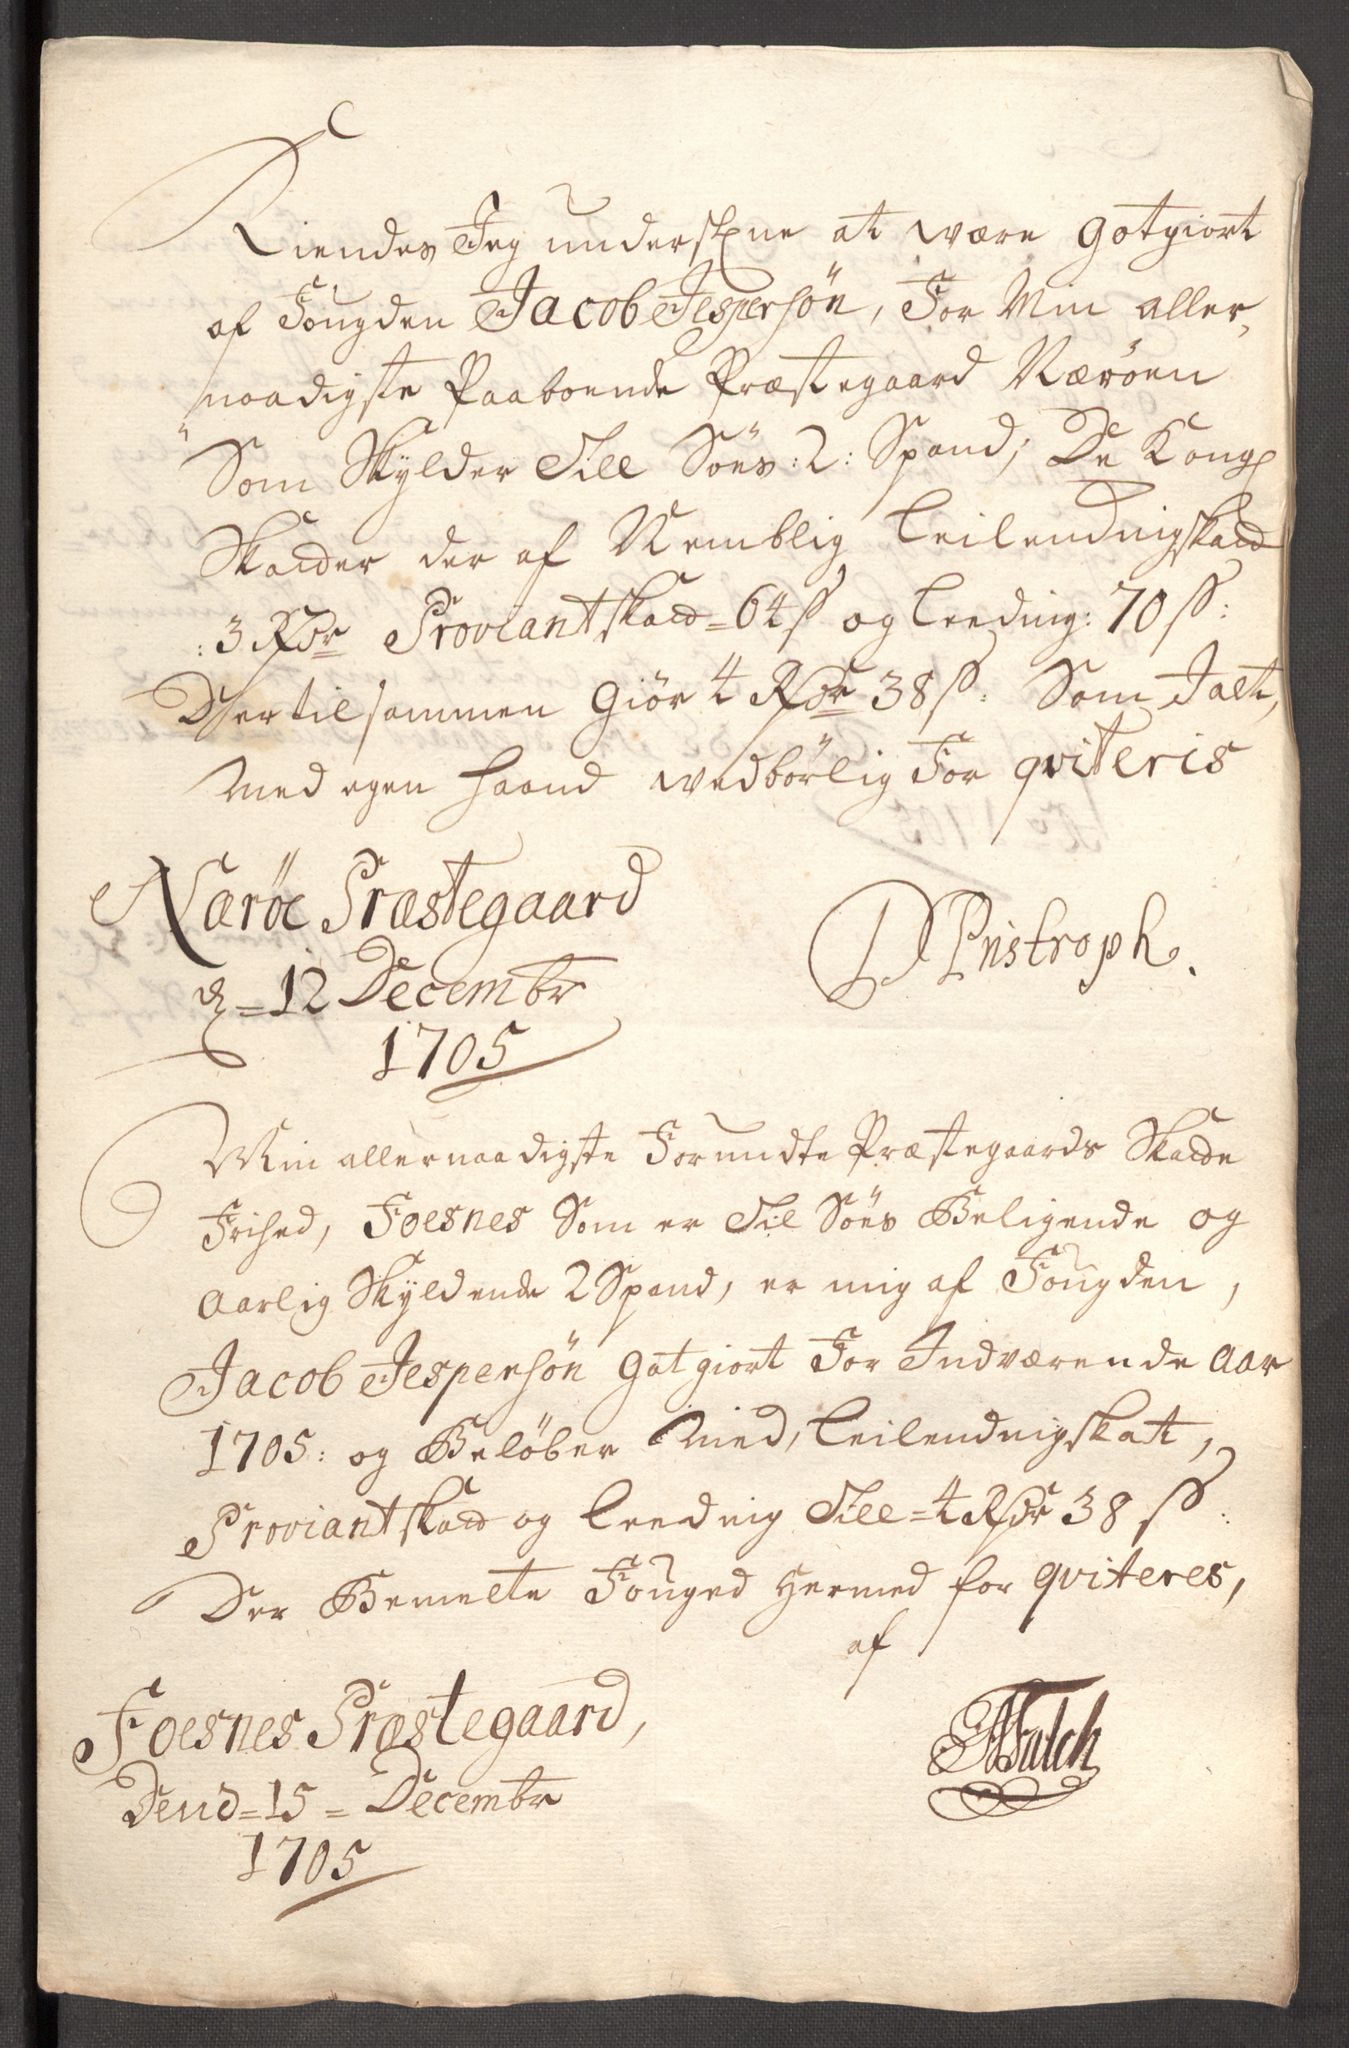 Kiendes Jeg undersHne at være gotgiort
af Fougden Jacob Jespersøn, For Min aller,
naadigste Paaboende Præstegaard Nærøen
Som Skylder Till Søes: 2: Spand, De Kongl
Skatter der af Nemblig Leilendingskatt
: 3 Rdr Proviantskatt = 64 ß og Leeding: 70 ß:
Der tilsammen giør 4 Rdr 38 ß: Som Jalt,
Med egen Haand wedbørlig For qviteris
Nærøe Præstegaard
d = 12 Decembr
1705
D Pristroph.
Min allernaadigste Forundte Præstegaards Skatte
Frihed, Foesnes Som er Til Søes Beligende og
Aarlig Skyldende 2 Spand, er mig af Fougden,
Jacob Jespersøn gotgiort For Indværende Aar
1705: og Beløber Med, Leilendingskat,
Proviantskatt og Leeding Till = 4 Rdr 38 ß:
Der Bemelte Fouged Hermed for qviteres,
af
Foesnes Præstegaard,
Dend = 15 = Decembr
1705
Falch